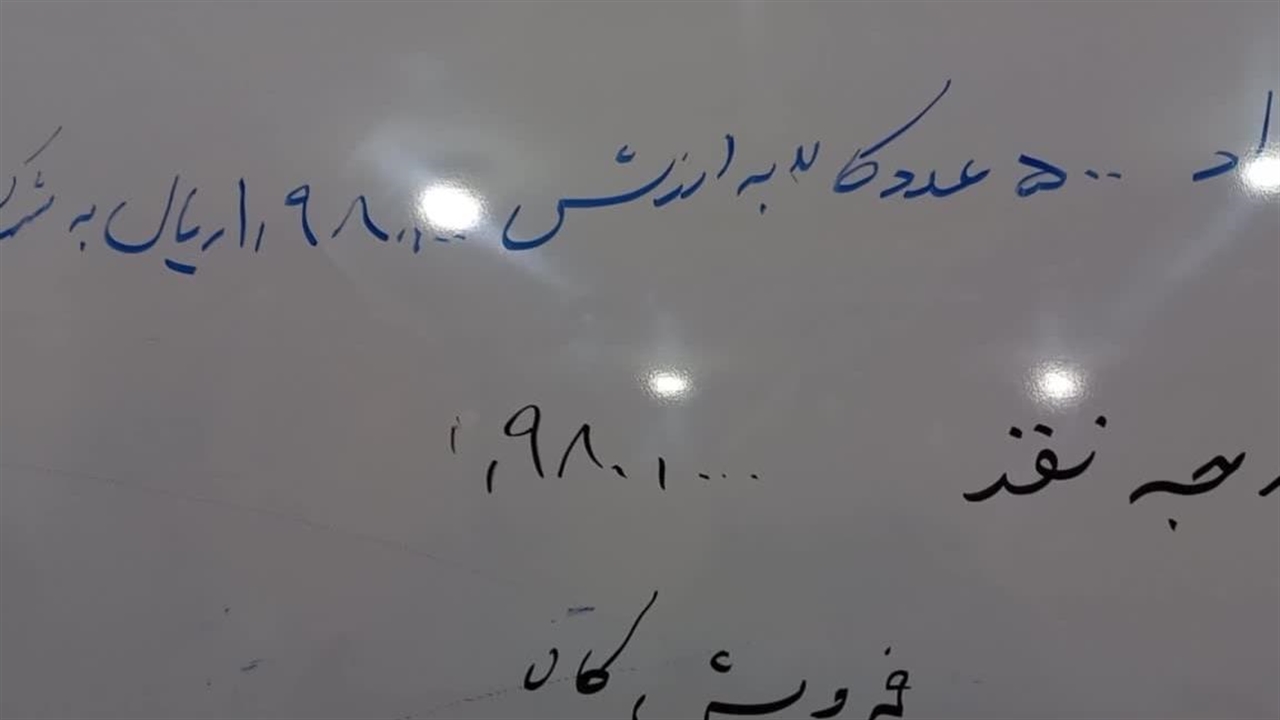 ۵۰۰ عدد کالا به ارزش ۱,۹۸۰,۰۰۰ ریال به
وجه نقد ۱,۹۸۰,۰۰۰
فروش کالا